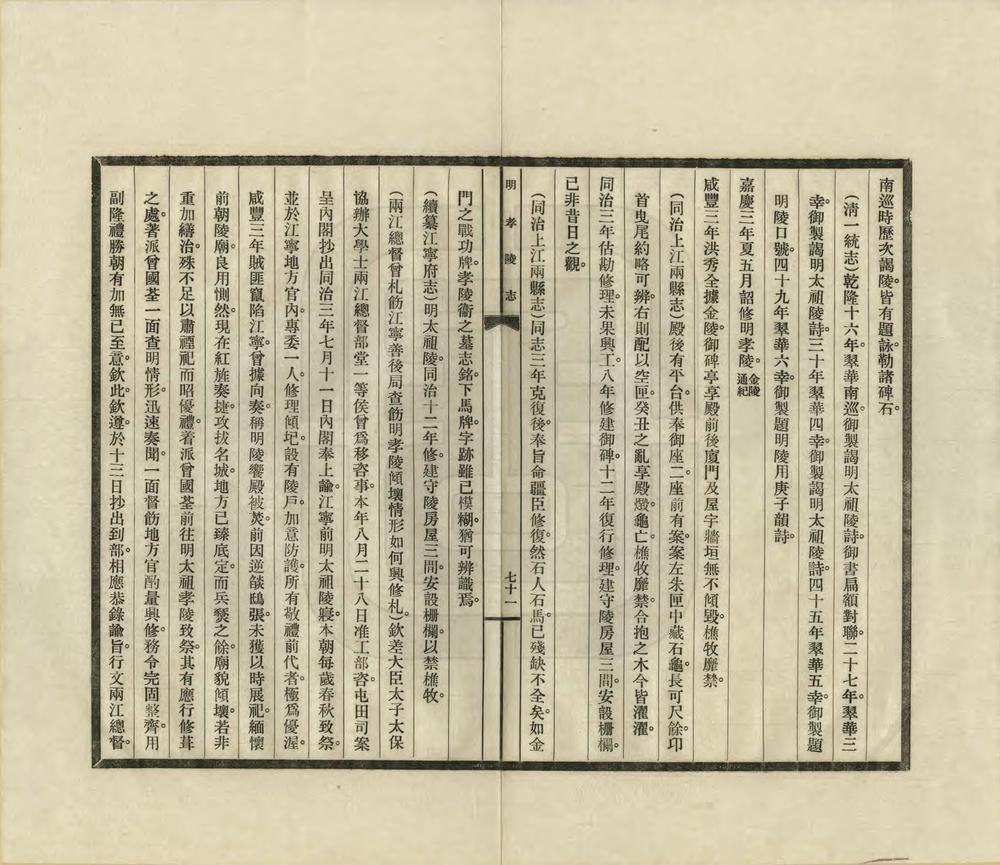 南巡時歷次謁陵。皆有題詠。勒諸碑石。
(淸一統志)乾隆十六年。翠華南巡。御製謁明太祖陵詩。御書扁額對聯。二十七年。翠華三
幸。御製謁明太祖陵詩。三十年。翠華四幸。御製謁明太祖陵詩。四十五年。翠華五幸。御製題
明陵口號。四十九年。翠華六幸。御製題明陵用庚子韻詩。
嘉慶三年夏五月。詔修明孝陵。金陵通紀
咸豐三年。洪秀全據金陵。御碑亭享殿前後廈門及屋宇牆垣。無不傾毀。樵牧靡禁。
(同治上江兩縣志)殿後有平台。供奉御座二座。前有案。案左朱匣中藏石龜。長可尺餘。卬
首曳尾約略可辨。右則配以空匣。癸丑之亂。享殿燬。龜亡。樵牧靡禁。合抱之木。今皆濯濯。
同治三年。估勘修理。未果興工。八年修建御碑。十二年復行修理。建守陵房屋三間。安設柵欄。
已非昔日之觀。
(同治上江兩縣志)同志三年克復後。奉旨命疆臣修復。然石人石馬。已殘缺不全矣。如金
明孝陵志
七十一
門之戰功牌。孝陵衞之墓志銘。下馬牌。字跡雖已模糊。猶可辨識焉。
(續纂江寧府志)明太祖陵。同治十二年修。建守陵房屋三間。安設柵欄。以禁樵牧。
(兩江總督曾札飭江寧善後局查飭明孝陵傾壞情形如何興修札)欽差大臣太子太保
協辦大學士兩江總督部堂一等侯曾爲移咨事。本年八月二十八日准工部咨。屯田司案
呈內閣抄出同治三年七月十一日內閣奉上諭。江寧前明太祖陵寢。本朝每歲春秋致祭。
並於江寧地方官內。專委一人。修理傾圮。設有陵戶。加意防護。所有敬禮前代者。極爲優渥。
咸豐三年。賊匪竄陷江寧。曾據向奏稱明陵饗殿被焚。前因逆燄鴟張。未獲以時展祀。緬懷
前朝陵廟。良用惻然。現在紅旌奏捷。攻拔名城。地方已臻底定。而兵燹之餘。廟貌傾壞。若非
重加繕治。殊不足以肅禋祀而昭優禮。着派曾國荃前往明太祖孝陵致祭。其有應行修葺
之處。著派曾國荃一面查明情形。迅速奏聞。一面督飭地方官。酌量興修。務令完固整齊。用
副隆禮勝朝有加無已至意。欽此欽遵。於十三日抄出到部。相應恭錄諭旨。行文兩江總督。